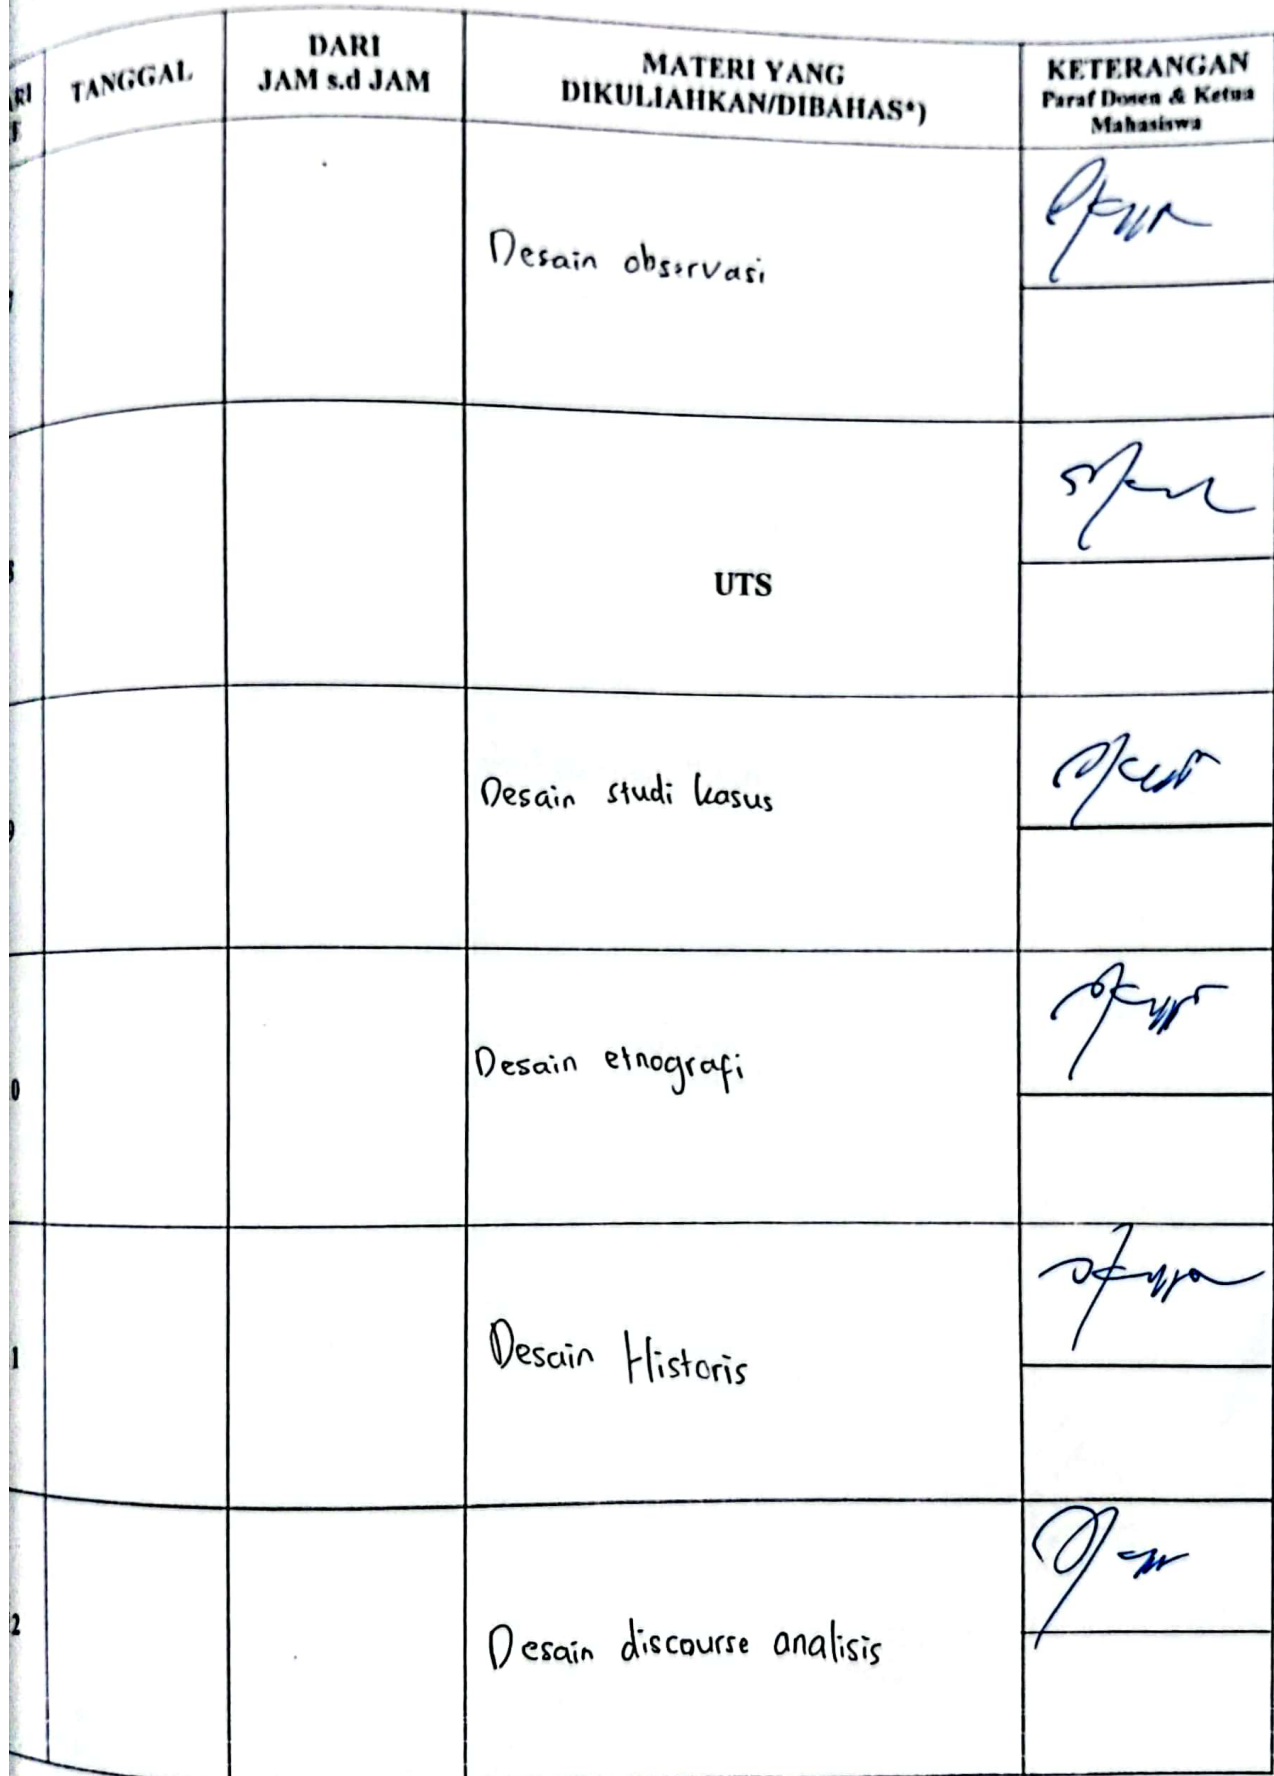 TANGGAL
DARI
JAM s.d JAM
MATERI YANG
DIKULIAHKAN/DIBAHAS*)
KETERANGAN
Paraf Dosen & Ketua
Mahasiswa
Desain observasi
UTS
Desain studi kasus
Desain etnografi
0
Desain Historis
1
Desain discourse analisis
2